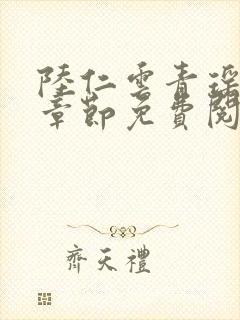 陸仁雲青瑶
章節免費閱
齊天禮